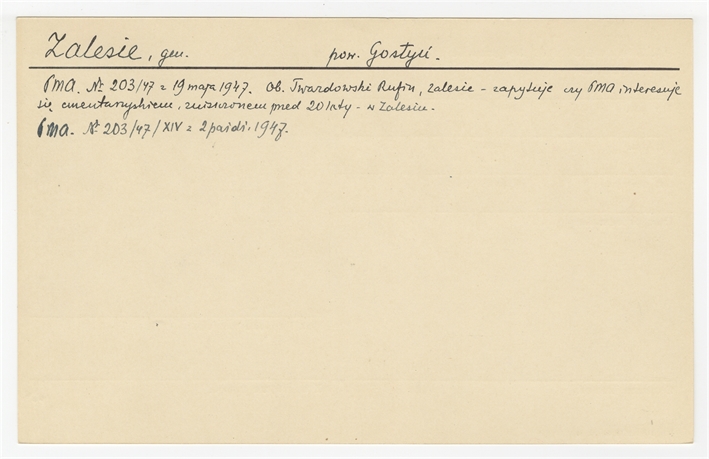 Zalesie, gm. pow. Gostyń.
PMA. № 203/47 z 19 maja 1947. Ob. Twardowski Rufin, Zalesie - zapytuje czy PMA interesuje
się cmentarzyskiem, zniszczonem przed 20 laty - w Zalesiu.
PMA. № 203/47/XIV z 2 paźdz. 1947.